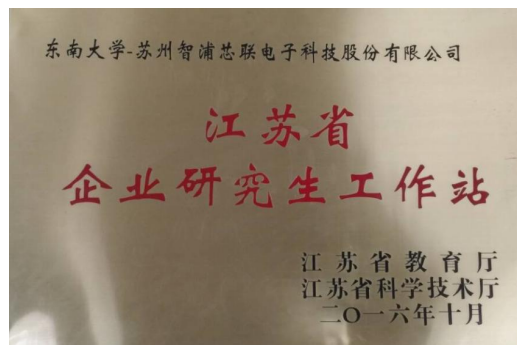 东南大学-苏州智浦芯联电子科技股份有限公司
江苏省
企业研究生工作站
江苏省教育厅
江苏省科学技术厅
二〇一六年十月